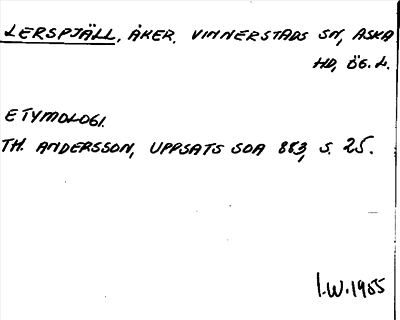 LERSPJÄLL, ÅKER, VINNERSTADS SN, ASKA
HD, ÖG. L.
ETYMOLOGI.
TH. ANDERSSON, UPPSATS SOA 883, S. 25.
I.W. 1955